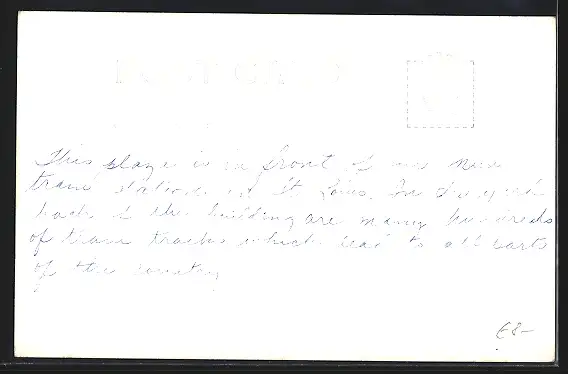 POST CARD
This plaza is in front of our new
train station in St Louis. In
back of the building are many hundreds
of train tracks which lead to all parts
of the country
€8-